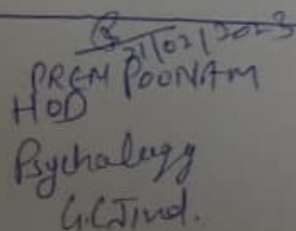 21/02/2023
PREM POONAM
HOD
Psychology
G.C Jind.